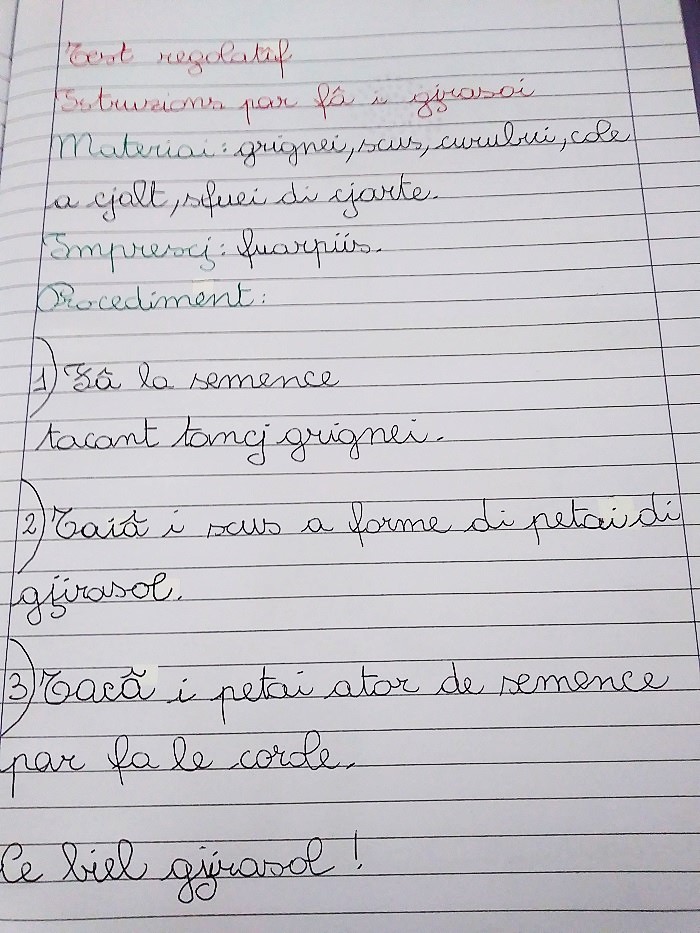 Test regolatîf
Istruzions par fâ i gjrasoi
Materiai: grignei, scus, curubui, cole
a cjalt, sfuei di cjarte.
Imprescj: fuarpiis.
Procediment:
1) Fâ la semence
tacant tancj grignei.
2) Taiâ i scus a forme di petai di
gjirasol.
3) Tacâ i petai ator de semence
par fa le corde.
Ce biel gjirasol!